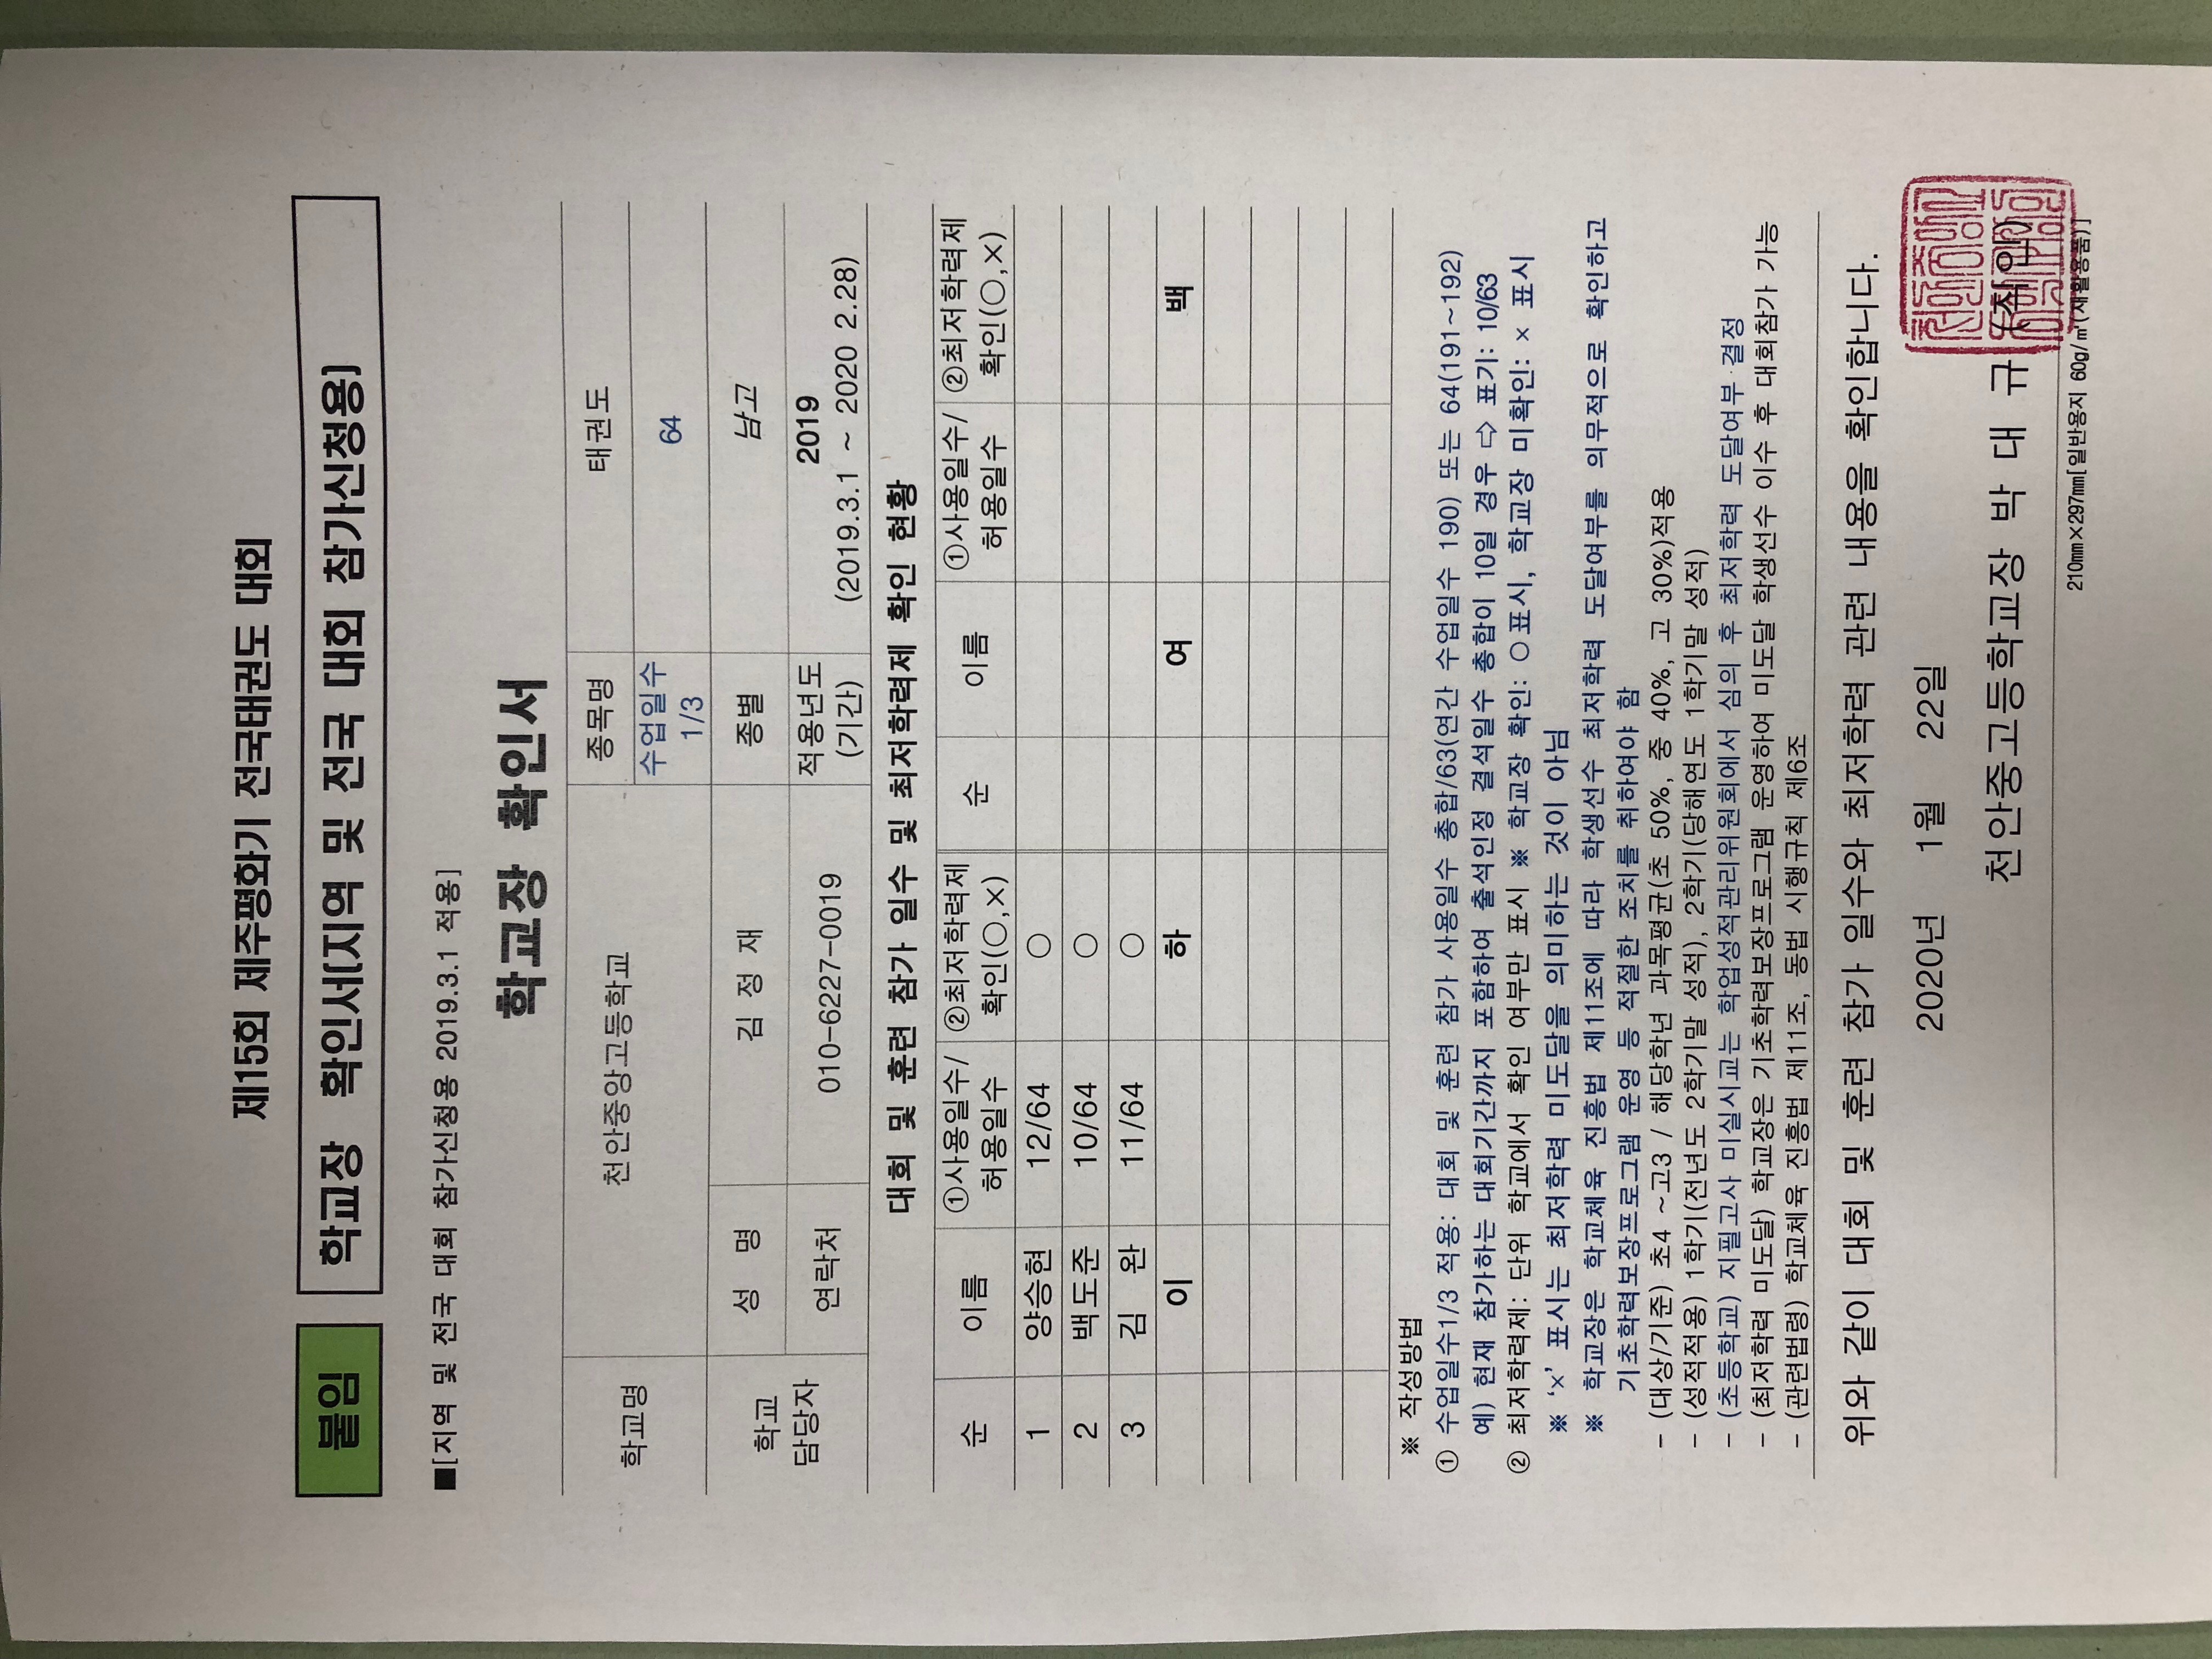 제15회 제주평화기 전국태권도 대회
붙임 학교장 확인서[지역 및 전국 대회 참가신청용]
■[지역 및 전국 대회 참가신청용 2019.3.1 적용]
학교장 확인서
학교명 천안중앙고등학교 종목명 태권도
수업일수 1/3 64
학교 담당자 성 명 김 정 재 종별 남고
연락처 010-6227-0019 적용년도 (기간) 2019 (2019.3.1 ~ 2020 2.28)
대회 및 훈련 참가 일수 및 최저학력제 확인 현황
순 이름 ①사용일수/허용일수 ②최저학력제 확인(○,×) 순 이름 ①사용일수/허용일수 ②최저학력제 확인(○,×)
1 양승현 12/64 ○
2 백도준 10/64 ○
3 김 완 11/64 ○
이 하 여 백
※ 작성방법
① 수업일수1/3 적용: 대회 및 훈련 참가 사용일수 총합/63(연간 수업일수 190) 또는 64(191~192)
예) 현재 참가하는 대회기간까지 포함하여 출석인정 결석일수 총합이 10일 경우 ⇨ 표기: 10/63
② 최저학력제: 단위 학교에서 확인 여부만 표시 ※ 학교장 확인: ○표시, 학교장 미확인: × 표시
※ ‘×’ 표시는 최저학력 미도달을 의미하는 것이 아님
※ 학교장은 학교체육 진흥법 제11조에 따라 학생선수 최저학력 도달여부를 의무적으로 확인하고
기초학력보장프로그램 운영 등 적절한 조치를 취하여야 함
- (대상/기준) 초4 ~고3 / 해당학년 과목평균(초 50%, 중 40%, 고 30%)적용
- (성적적용) 1학기(전년도 2학기말 성적), 2학기(당해연도 1학기말 성적)
- (초등학교) 지필고사 미실시교는 학업성적관리위원회에서 심의 후 최저학력 도달여부 결정
- (최저학력 미도달) 학교장은 기초학력보장프로그램 운영하여 미도달 학생선수 이수 후 대회참가 가능
- (관련법령) 학교체육 진흥법 제11조, 동법 시행규칙 제6조
위와 같이 대회 및 훈련 참가 일수와 최저학력 관련 내용을 확인합니다.
2020년 1월 22일
천안중고등학교장 박 대 규 (직인)
210㎜×297㎜[일반용지 60g/㎡(재활용품)]